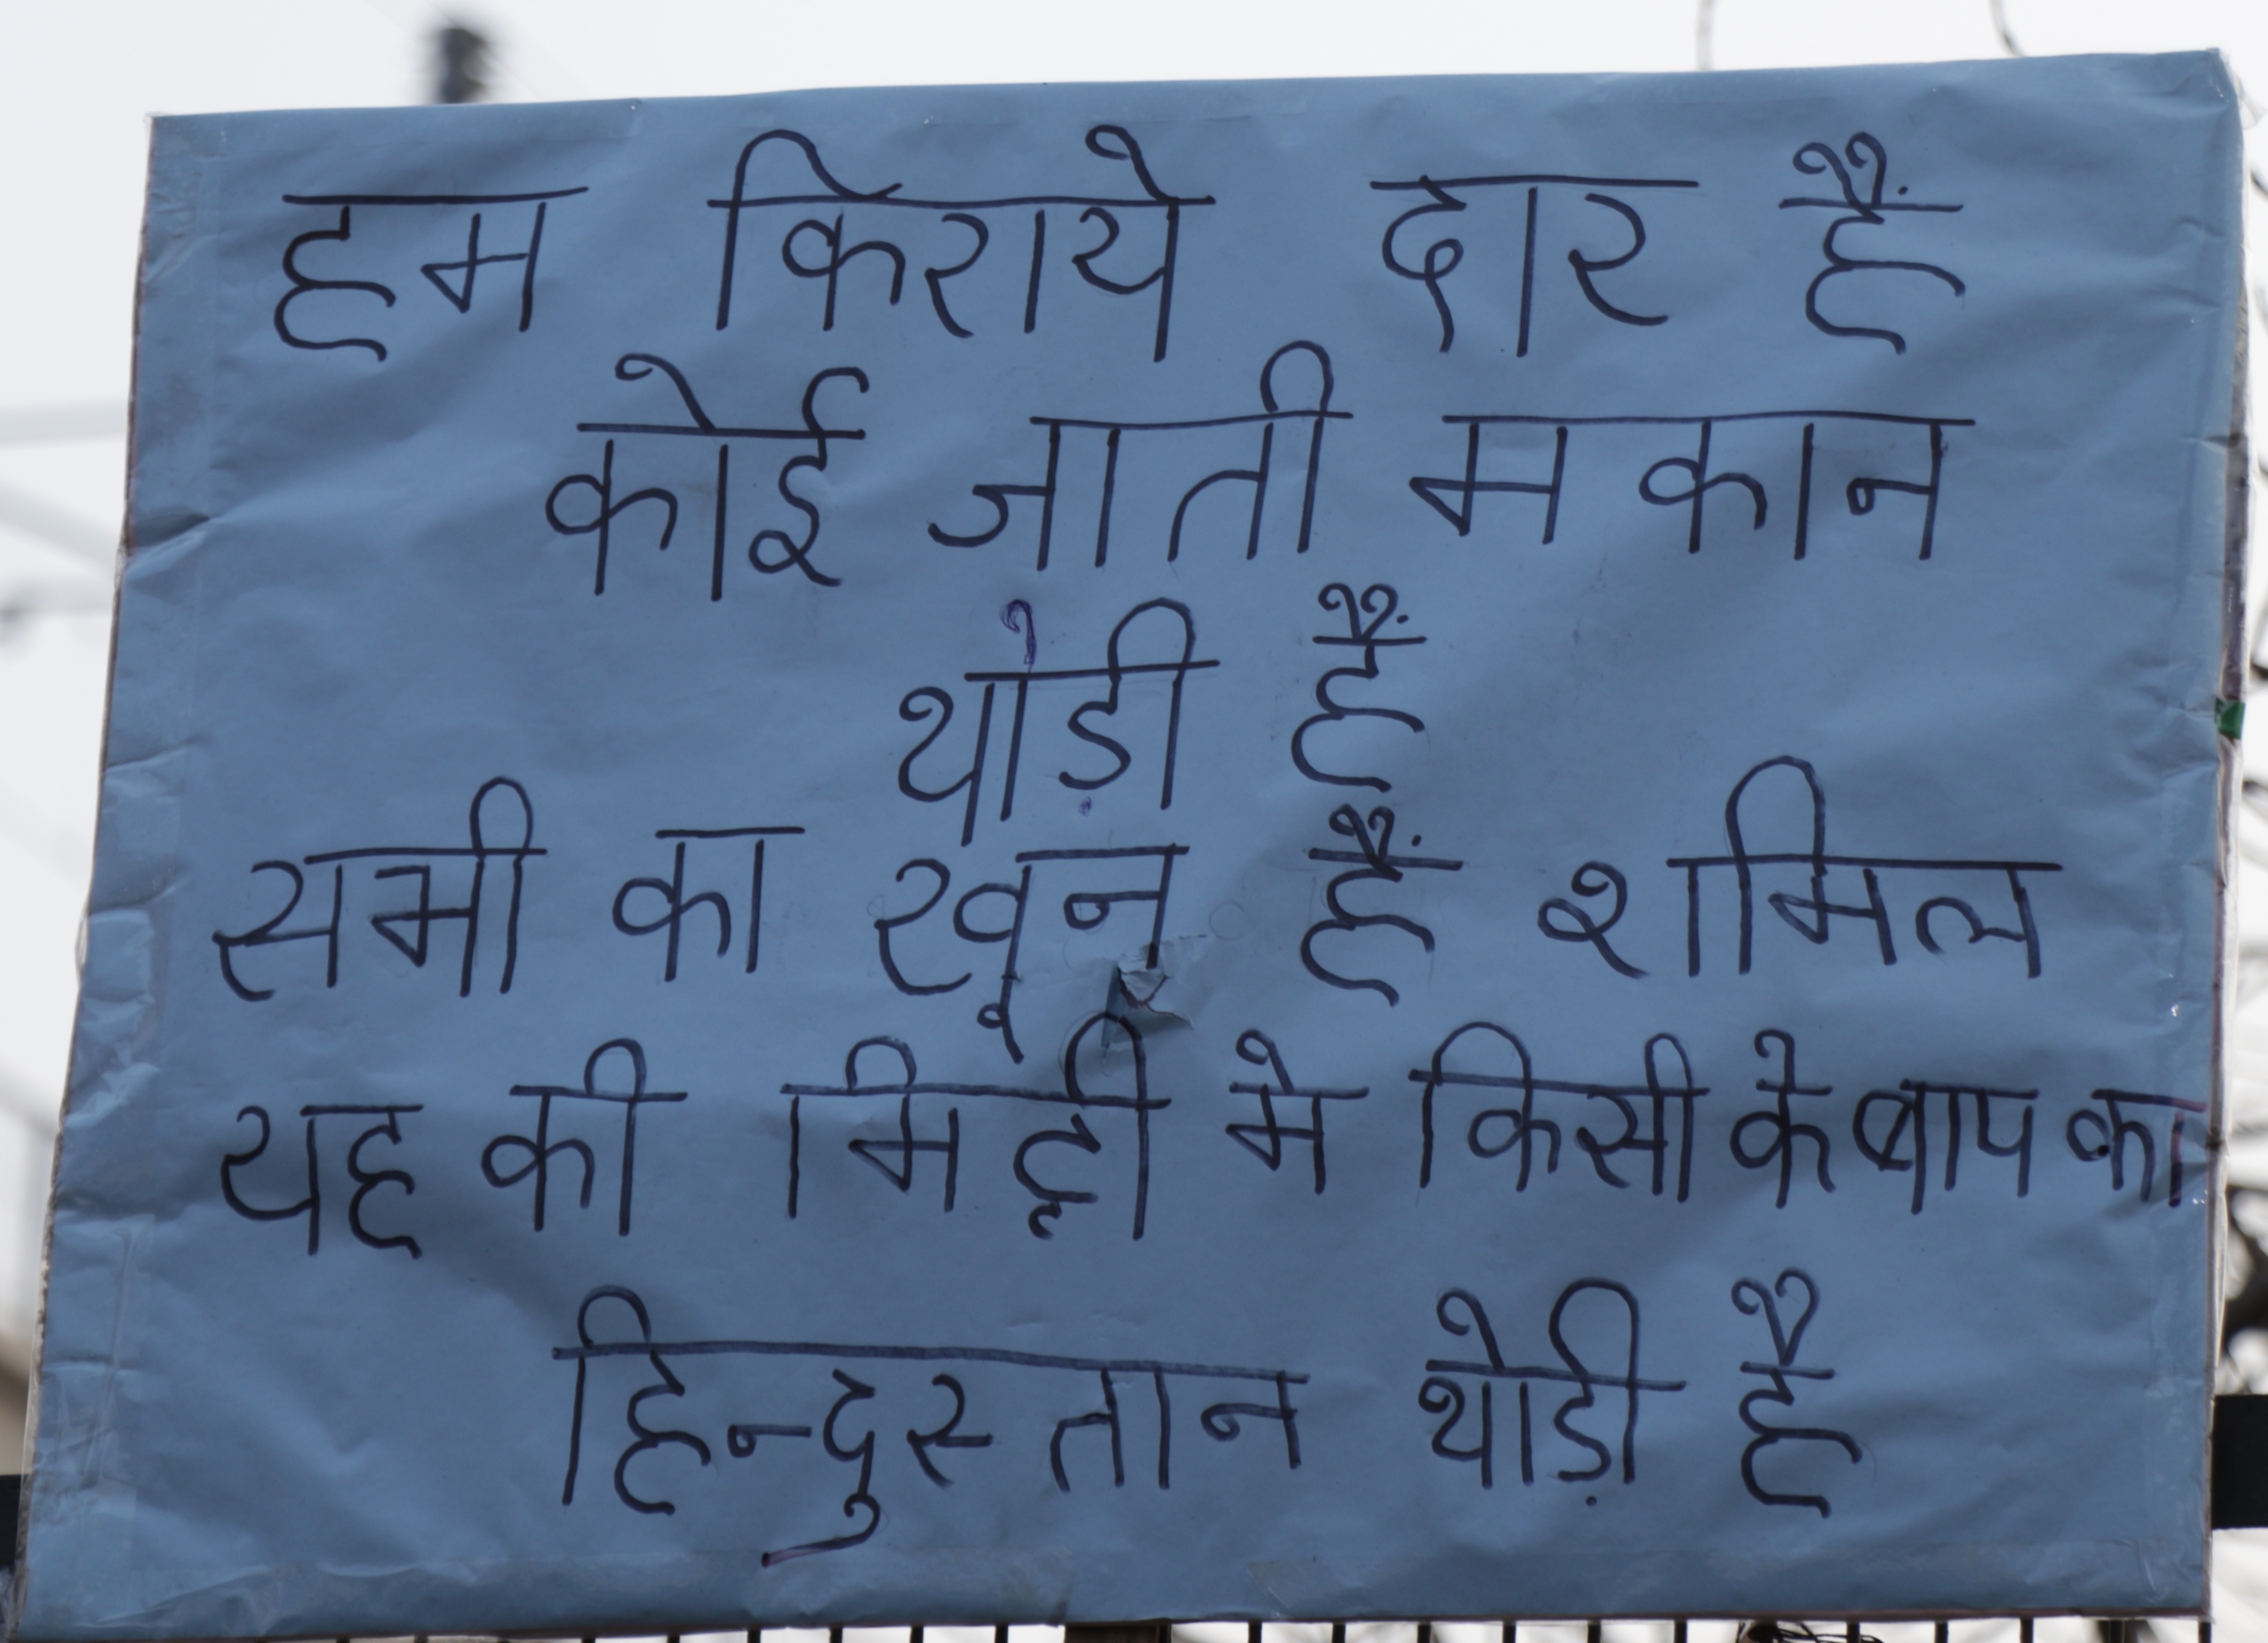 हम किराये दार हैं
कोई जाती मकान
थोड़ी हैं
सभी का खून हैं शामिल
यह की मिट्टी मे किसी के बाप का
हिन्दुस्तान थोड़ी है